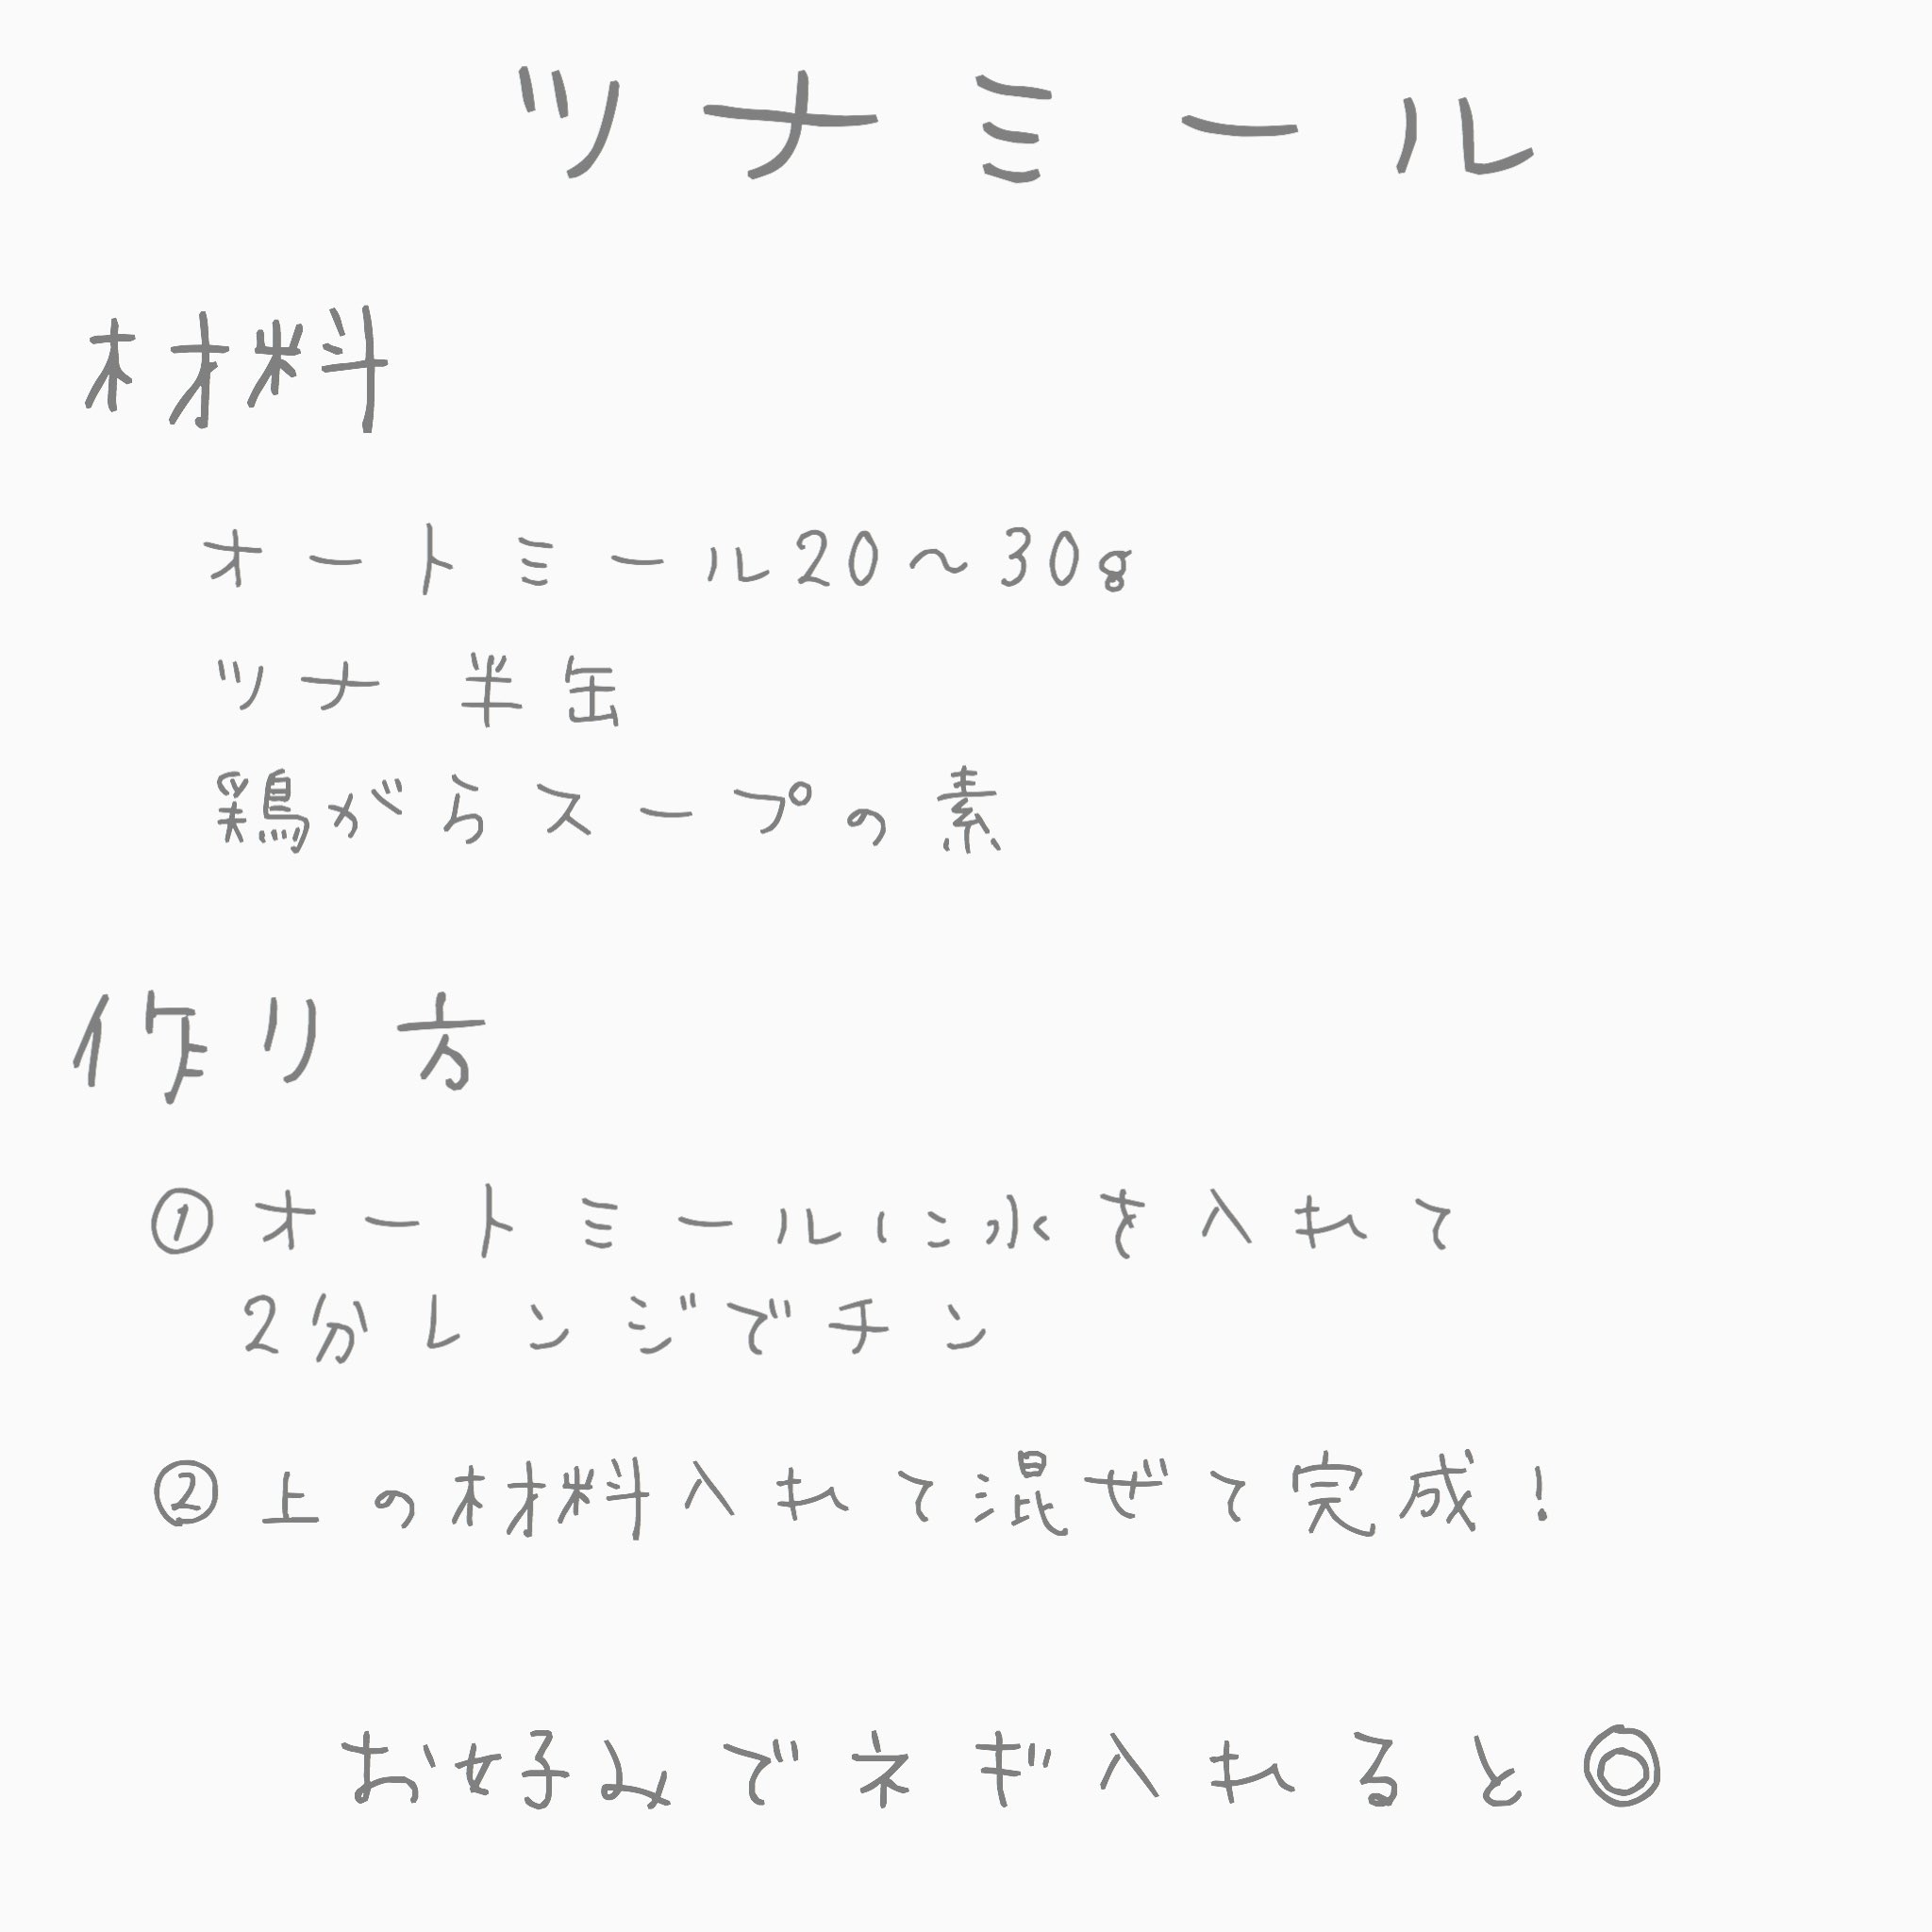 ツナミール
材料
オートミール20～30g
ツナ 半缶
鶏がらスープの素
作り方
①オートミールに水を入れて
2分レンジでチン
②上の材料入れて混ぜて完成！
お好みでネギ入れると◎